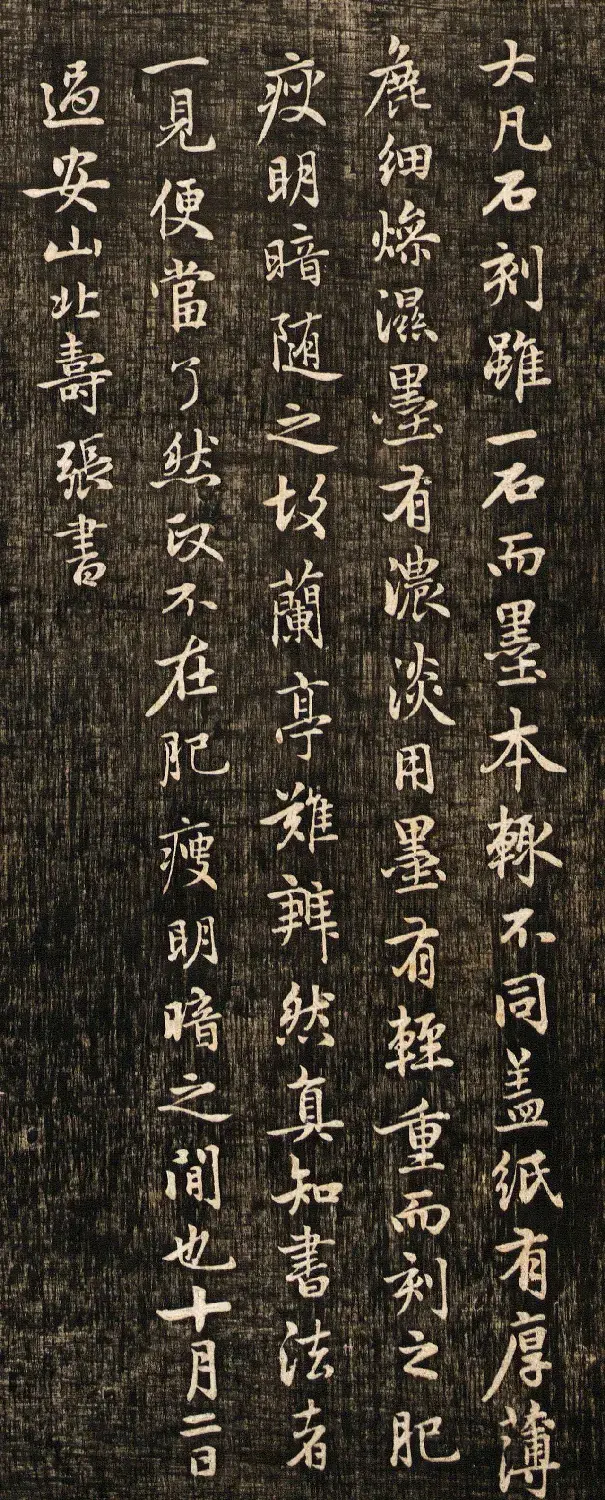 大凡石刻雖一石而墨本輙不同盖纸有厚薄
麄细燥濕墨有濃淡用墨有輕重而刻之肥
瘦明暗随之故蘭亭難辨然真知書法者
一見便當了然政不在肥瘦明暗之間也十月二日
過安山北壽張書